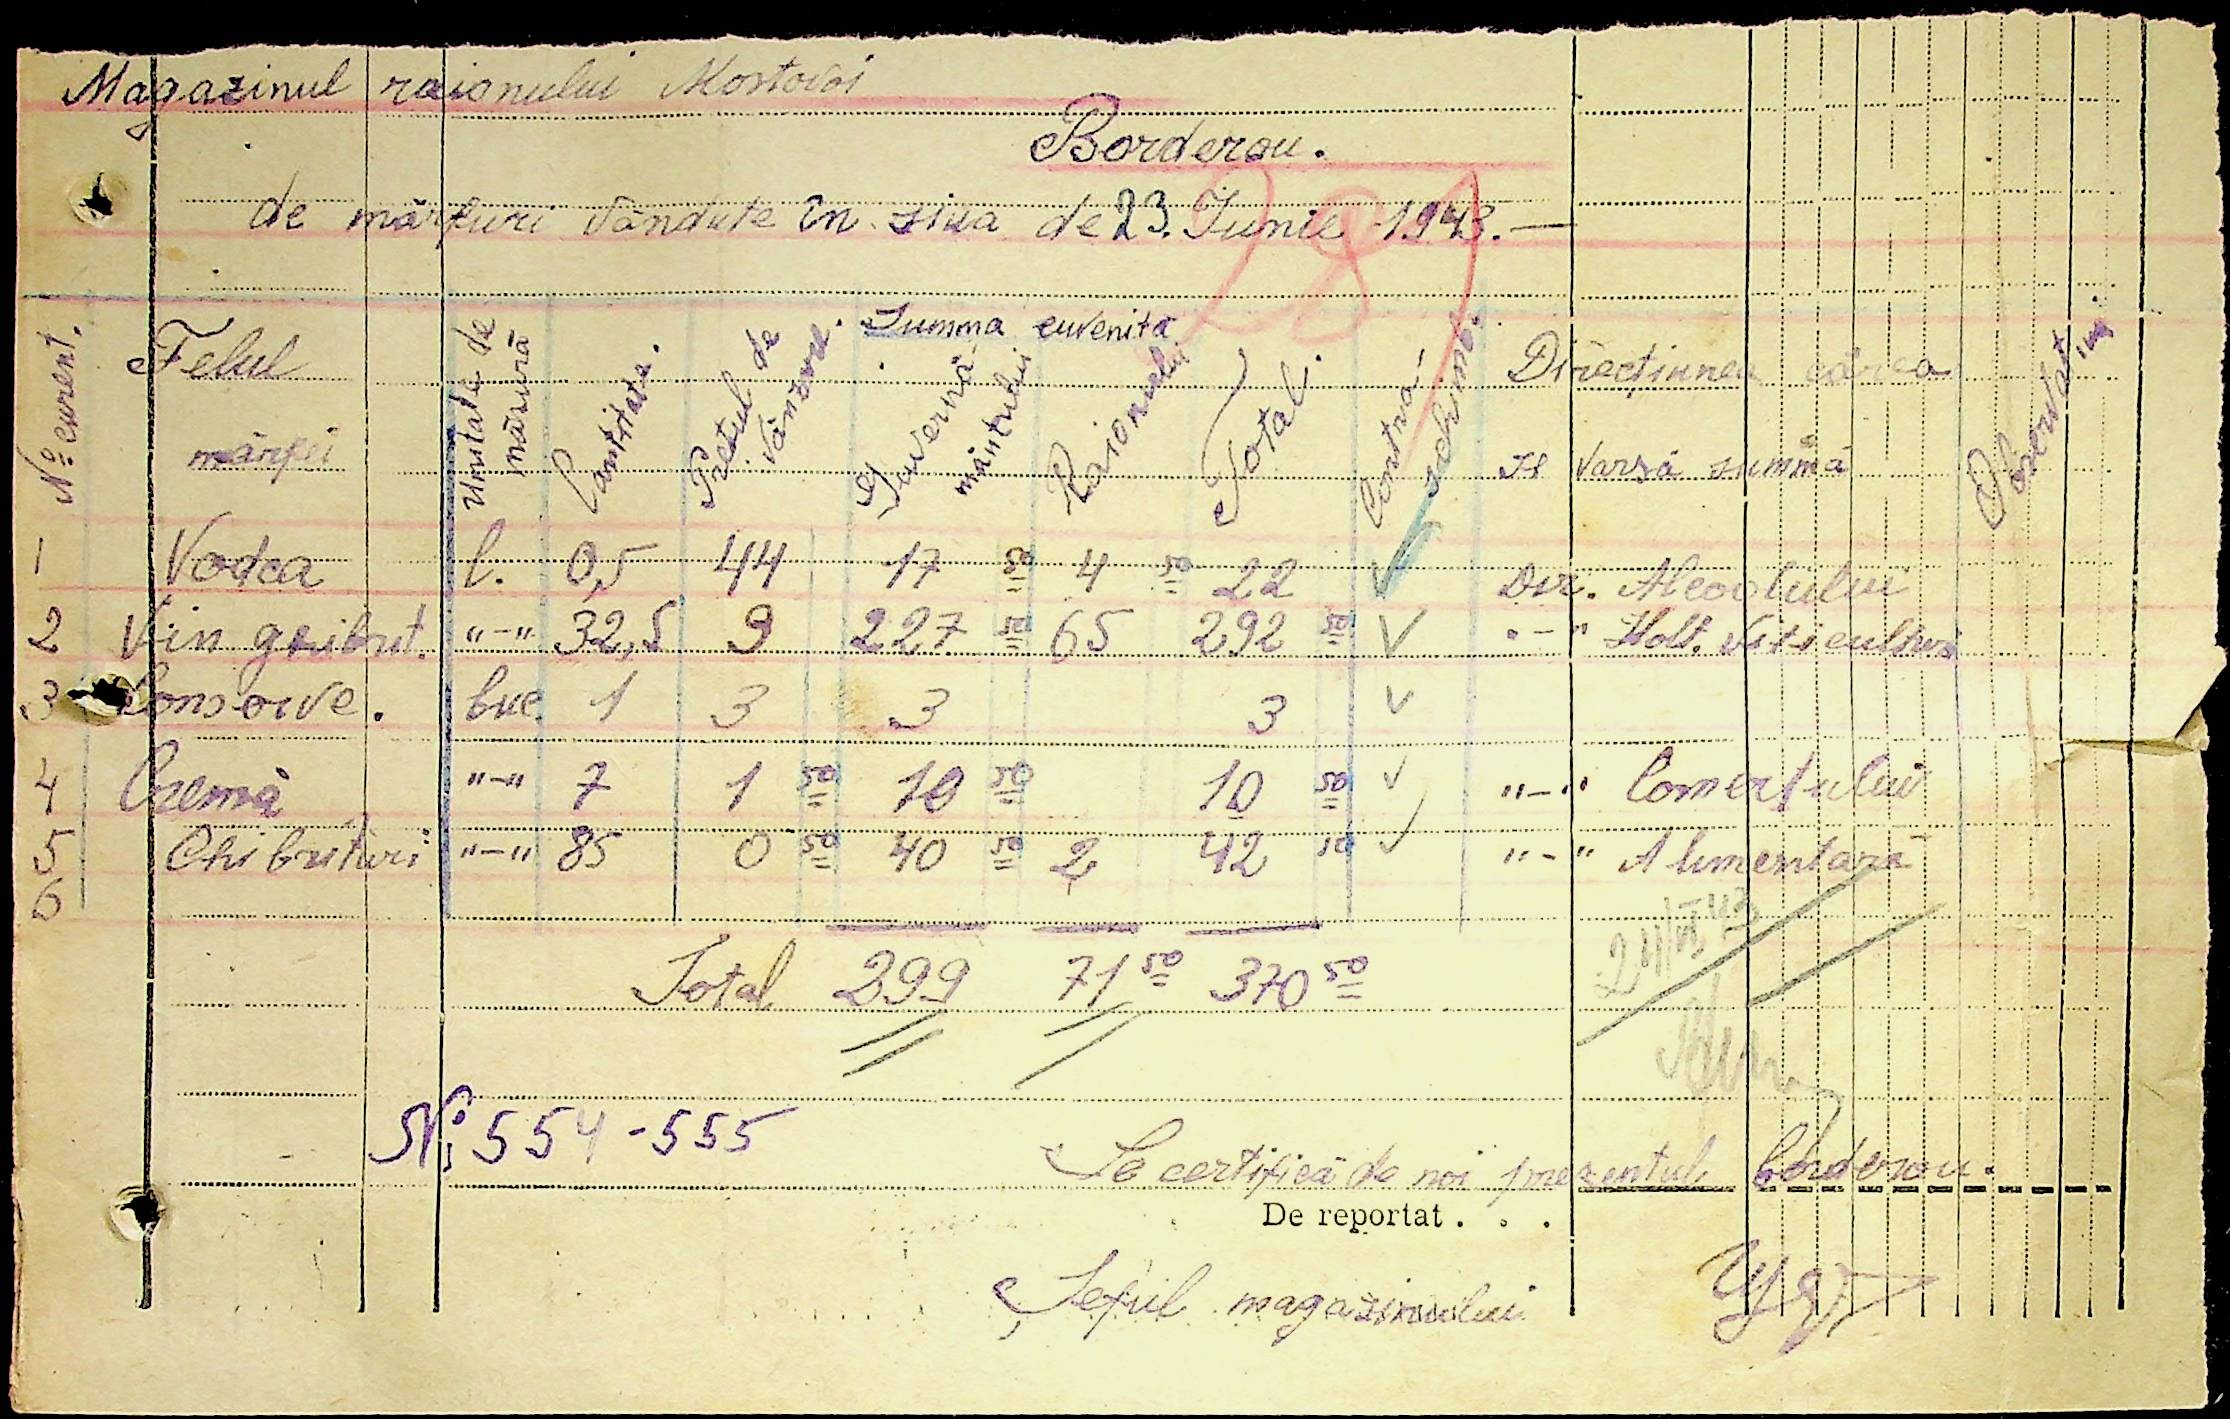 Magazinul raionului Mostovoi
Borderou.
de mărfuri vândute în ziua de 23. Iunie 1943.—
281
№ curent.
Felul
mărfei
Unitate de măsură
Cantitate.
Prețul de vânzare.
Summa cuvenită
Guvernă-
mântului
Raionului
Total.
Contra-
schimb.
Direcțiunea cărea
se varsă summă
Observațiuni
1 Vodca l. 0,5 44 17 50 4 50 22 V Dir. Alcoolului
2 Vin gribut. "-" 32,5 9 227 50 65 292 50 V "-" Holt. Viticultura
3 Conserve. buc. 1 3 3 3 V
4 Cremă "-" 7 1 50 10 50 10 50 V "-" Comerțului
5 Chibrituri "-" 85 0 50 40 50 2 42 50 V "-" Alimentară
6
24/VI 43
Total 299 71 50 370 50
№ 554-555
Se certifică de noi prezentul borderou.
De reportat . . .
Șeful magazinului